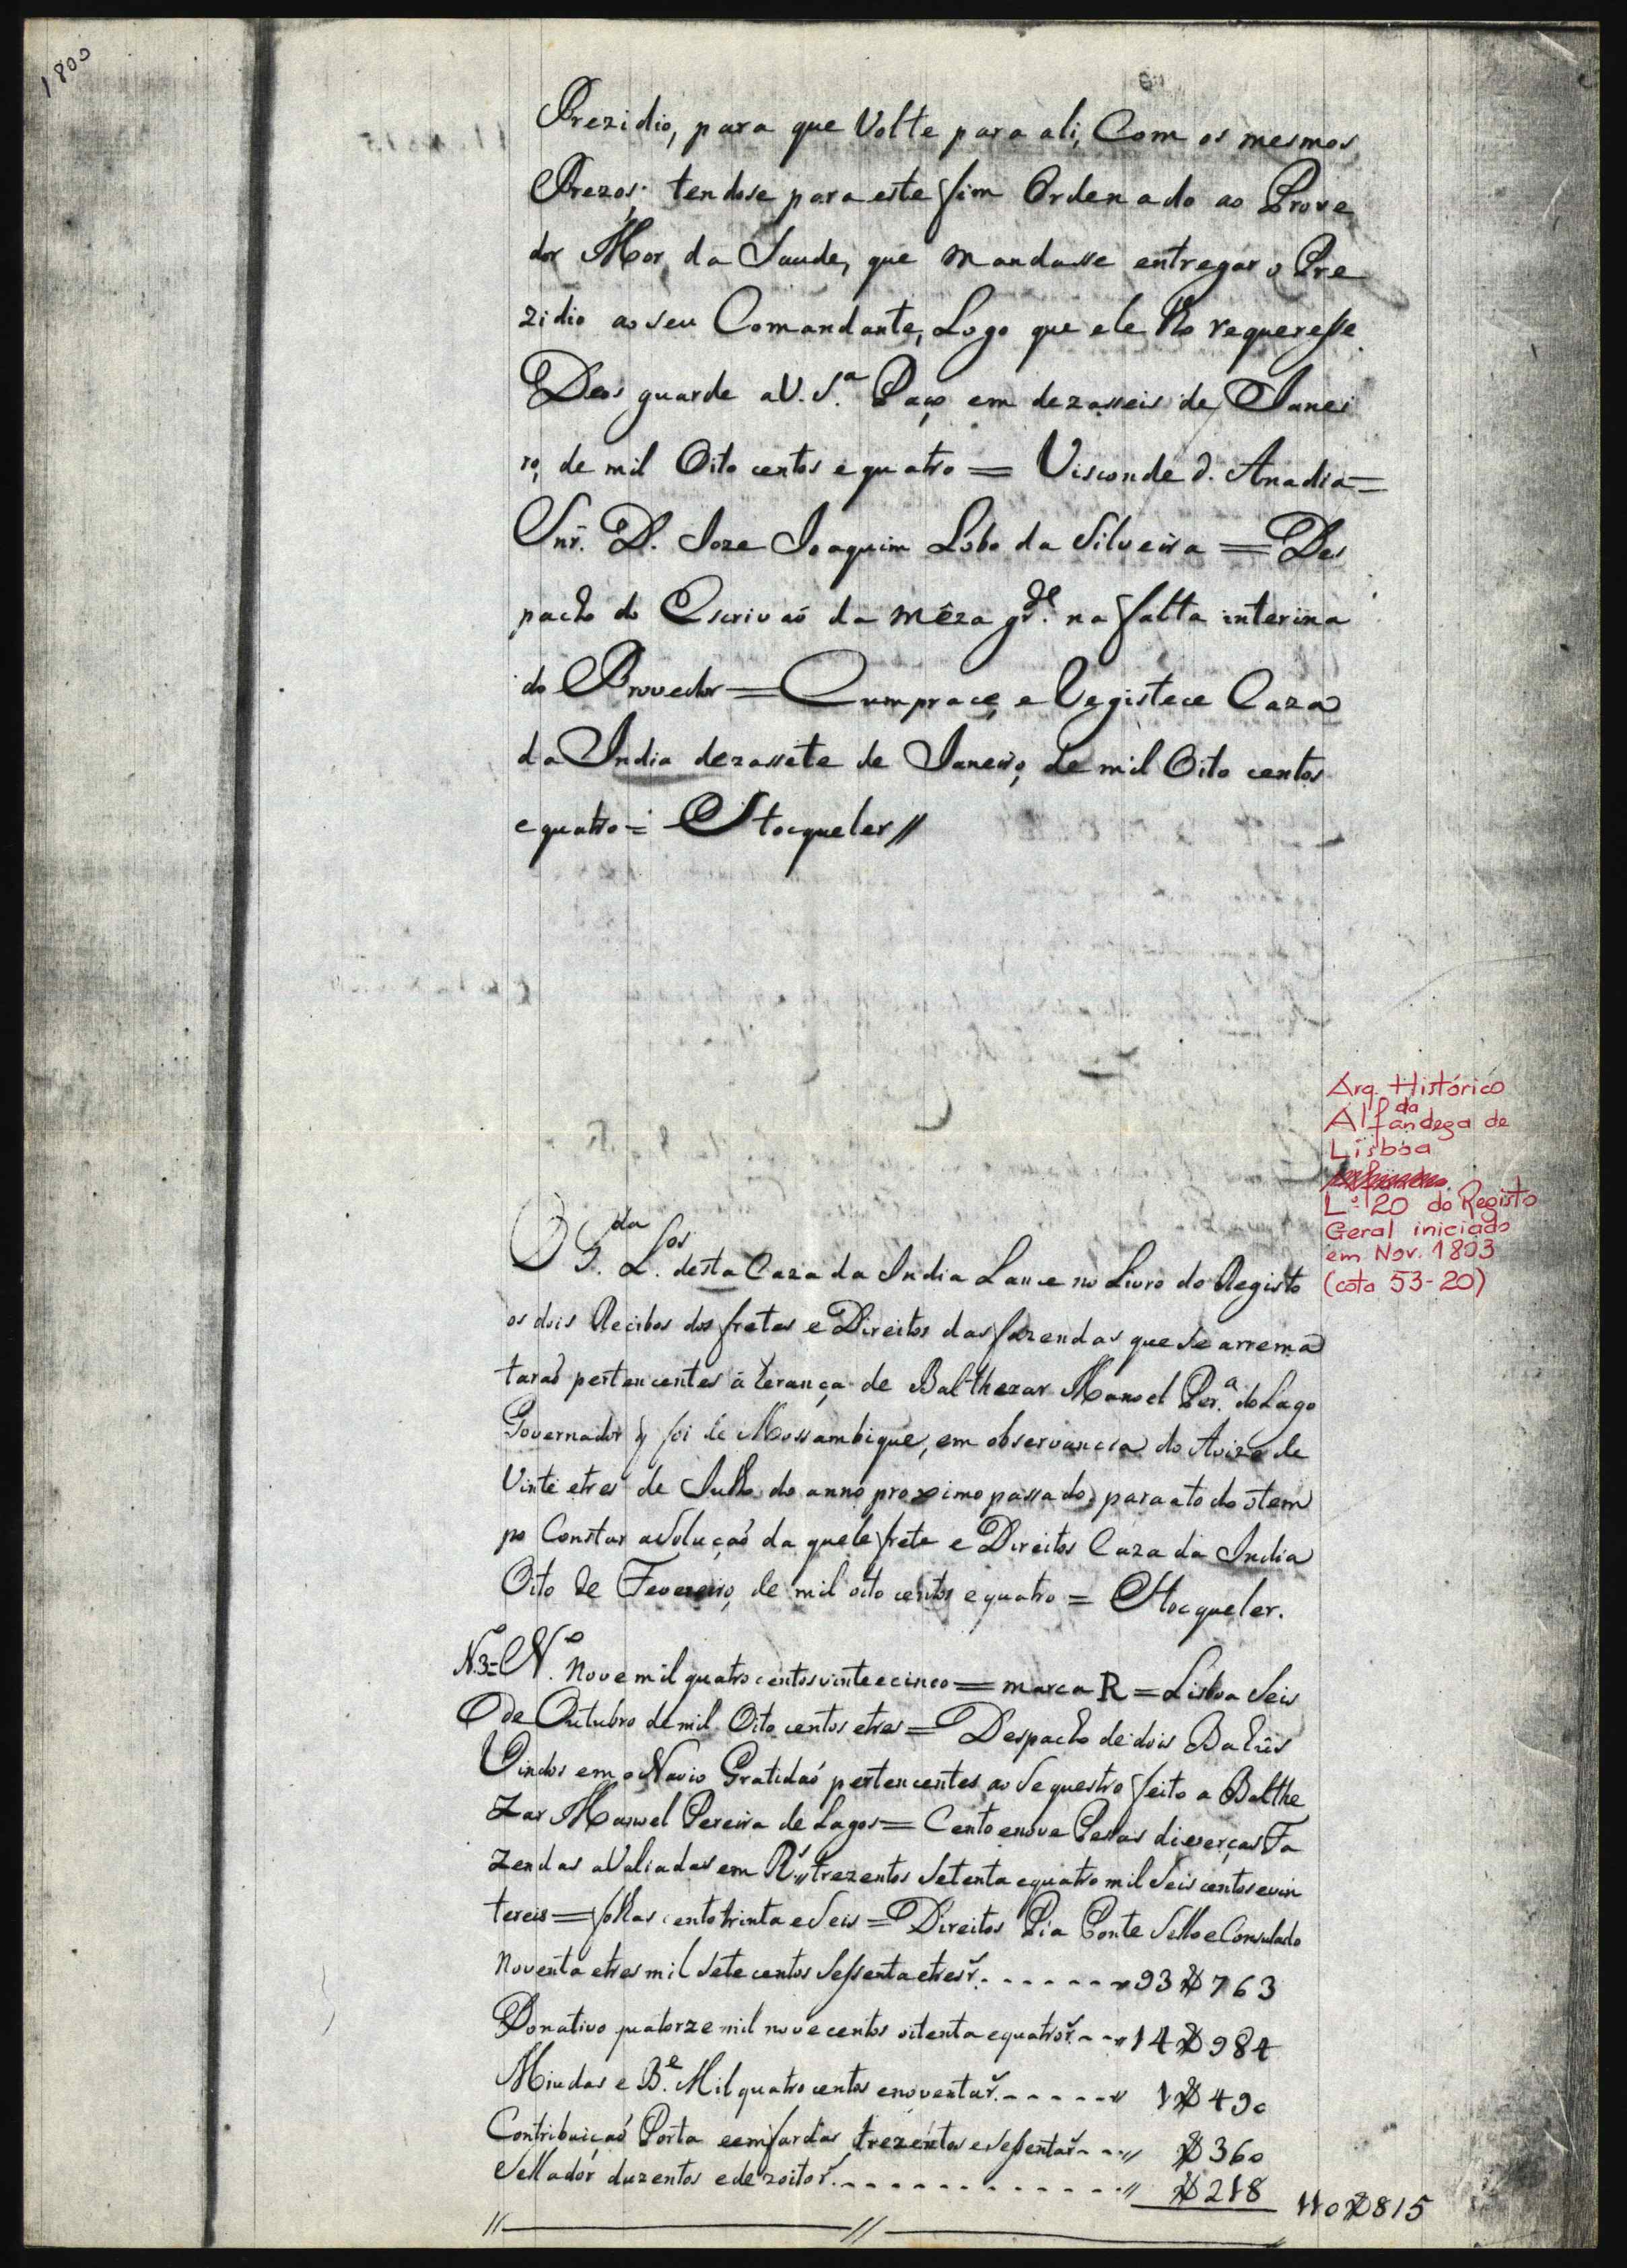 1800
Prezidio, para que Volte para ali, Com os mesmos
Prezos; tendose para este fim Ordenado ao Prove
dor Mor, da Saude, que mandasse entregar o Pre
zidio ao seu Comandante, Logo que ele lho requeresse.
Deos guarde a V. S.ª Paço em dezasseis de Janei
ro, de mil Oito centos e quatro = Visconde d. Anadia =
Snr. D. Joze Joaquim Lobo da Silveira = Des
pacho do Escrivaõ da mêza gr.de na falta interina
do Provedor = Cumprace, e Registece Caza
da India dezassete de Janeiro, de mil Oito centos
e quatro = Stocqueler //
Arq. Histórico
da
Alfandega de
Lisboa
L.º 20 do Registo
Geral iniciado
em Nov. 1803
(cota 53-20)
O G.da L.ºs desta Caza da India Lance no Livro do Registo
os dois Recibos dos fretes e Direitos das fazendas que se arrema
taraõ pertencentes á herança de Balthezar Manoel Per.ª do Lago
Governador q foi de Mossambique, em observancia do Avizo de
Vinte e tres de Julho do anno proximo passado, para a todo o tem
po Constar a Soluçaõ da quele frete e Direitos Caza da India
Oito de Fevereiro, de mil oito centos e quatro = Stocqueler.
N.3 = N.º Nove mil quatro centos vinte e cinco = marca R = Lisboa Seis
de Outubro de mil Oito centos e tres = Despacho de dois Bahûs
Vindos em o Navio Gratidaõ pertencentes ao Sequestro feito a Balthe
zar Manoel Pereira de Lagos = Cento e nove Pessas diverças Fa
zendas aValiadas em R.s // trezentos Setenta e quatro mil Seis centos e vin
te reis = folhas cento trinta e Seis = Direitos Pia Ponte Sello e Consulado
Noventa e tres mil Sete centos Sessenta e tres r. - - - - - - 93$763
Donativo quatorze mil nove centos oitenta e quatro r. - - // 14$984
Miudas e B.e Mil quatro centos e noventa r. - - - - - // 1$490
Contribuiçaõ Porta e emfardar, trezentos e sessenta r. - - // $360
Sellador duzentos e dezoito r. - - - - - - - - - - - - // $218 110$815